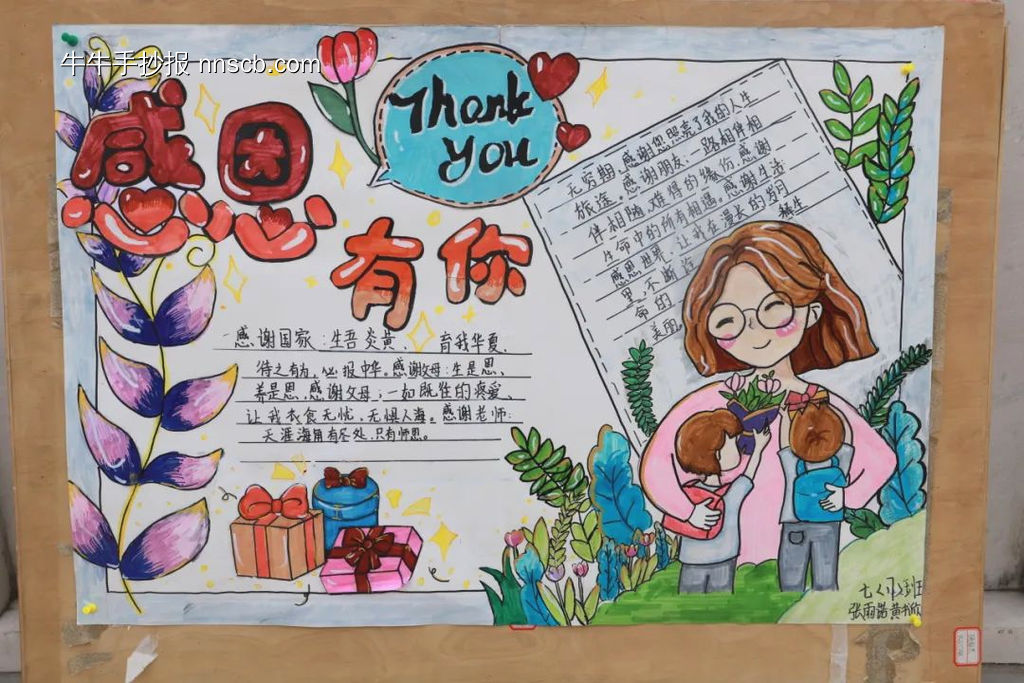 牛牛手抄报 nnscb.com
感恩
有你
Thank
you
感谢国家:生吾炎黄、育我华夏、
待之有为,必报中华。感谢父母:生是恩、
养是恩,感谢父母;一如既往的疼爱、
让我衣食无忧,无惧人海。感谢老师:
天涯海角有尽处,只有师恩。
无穷期,感谢您照亮了我的人生
旅途。感谢朋友、一路相伴相
伴相随,难得的缘份,感谢
生命中的所有相遇。感谢生活
感恩世界,让我在漫长的岁月
里,不断诠 稀生
命的
美丽。
七 班
张雨诺黄